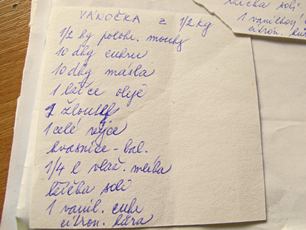 VÁNOČKA z 1/2 kg
1/2 kg poloh. mouky
10 dkg cukru
10 dkg másla
1 lžíce oleje
žloutek
1 celé vejce
kvasnice - bal.
1/4 l vlaž. mléka
lžička soli
1 vanil. cukr
citron. kůra
lžička soli
1 vanilkový
citron. kůra